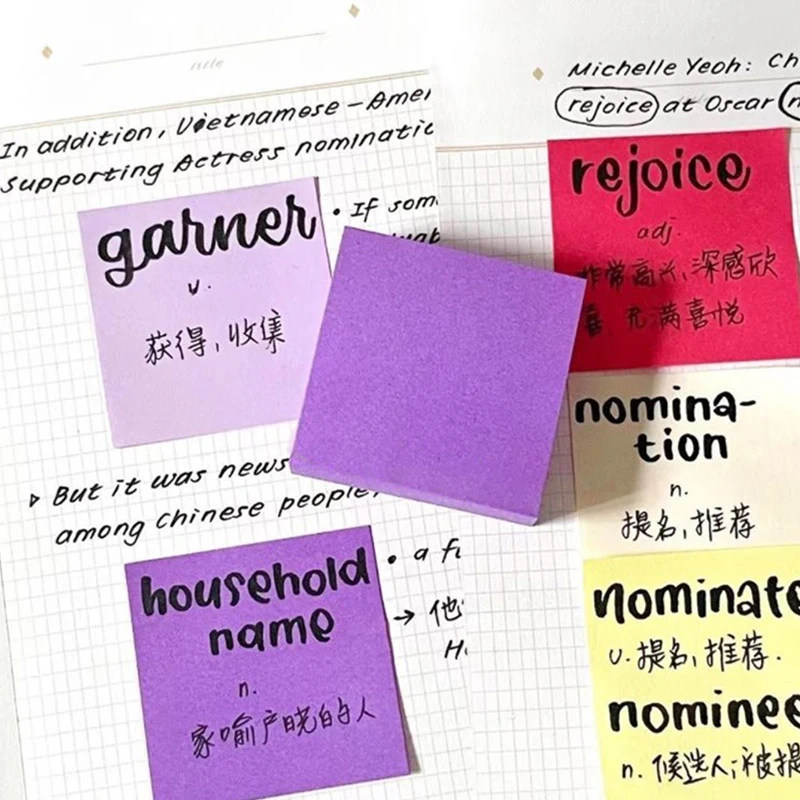 In addition, Vietnamese-Amer
Supporting Actress nominatic
garner
v.
获得,收集
• If som
▷ But it was news
among Chinese people,
household
name
n.
家喻户晓的人
• a fi
→ 他
H
Michelle Yeoh: Ch
rejoice at Oscar n
rejoice
adj.
非常高兴,深感欣
喜,充满喜悦
nomina-
tion
n.
提名,推荐
nominate
v.提名,推荐.
nominee
n.候选人;被提